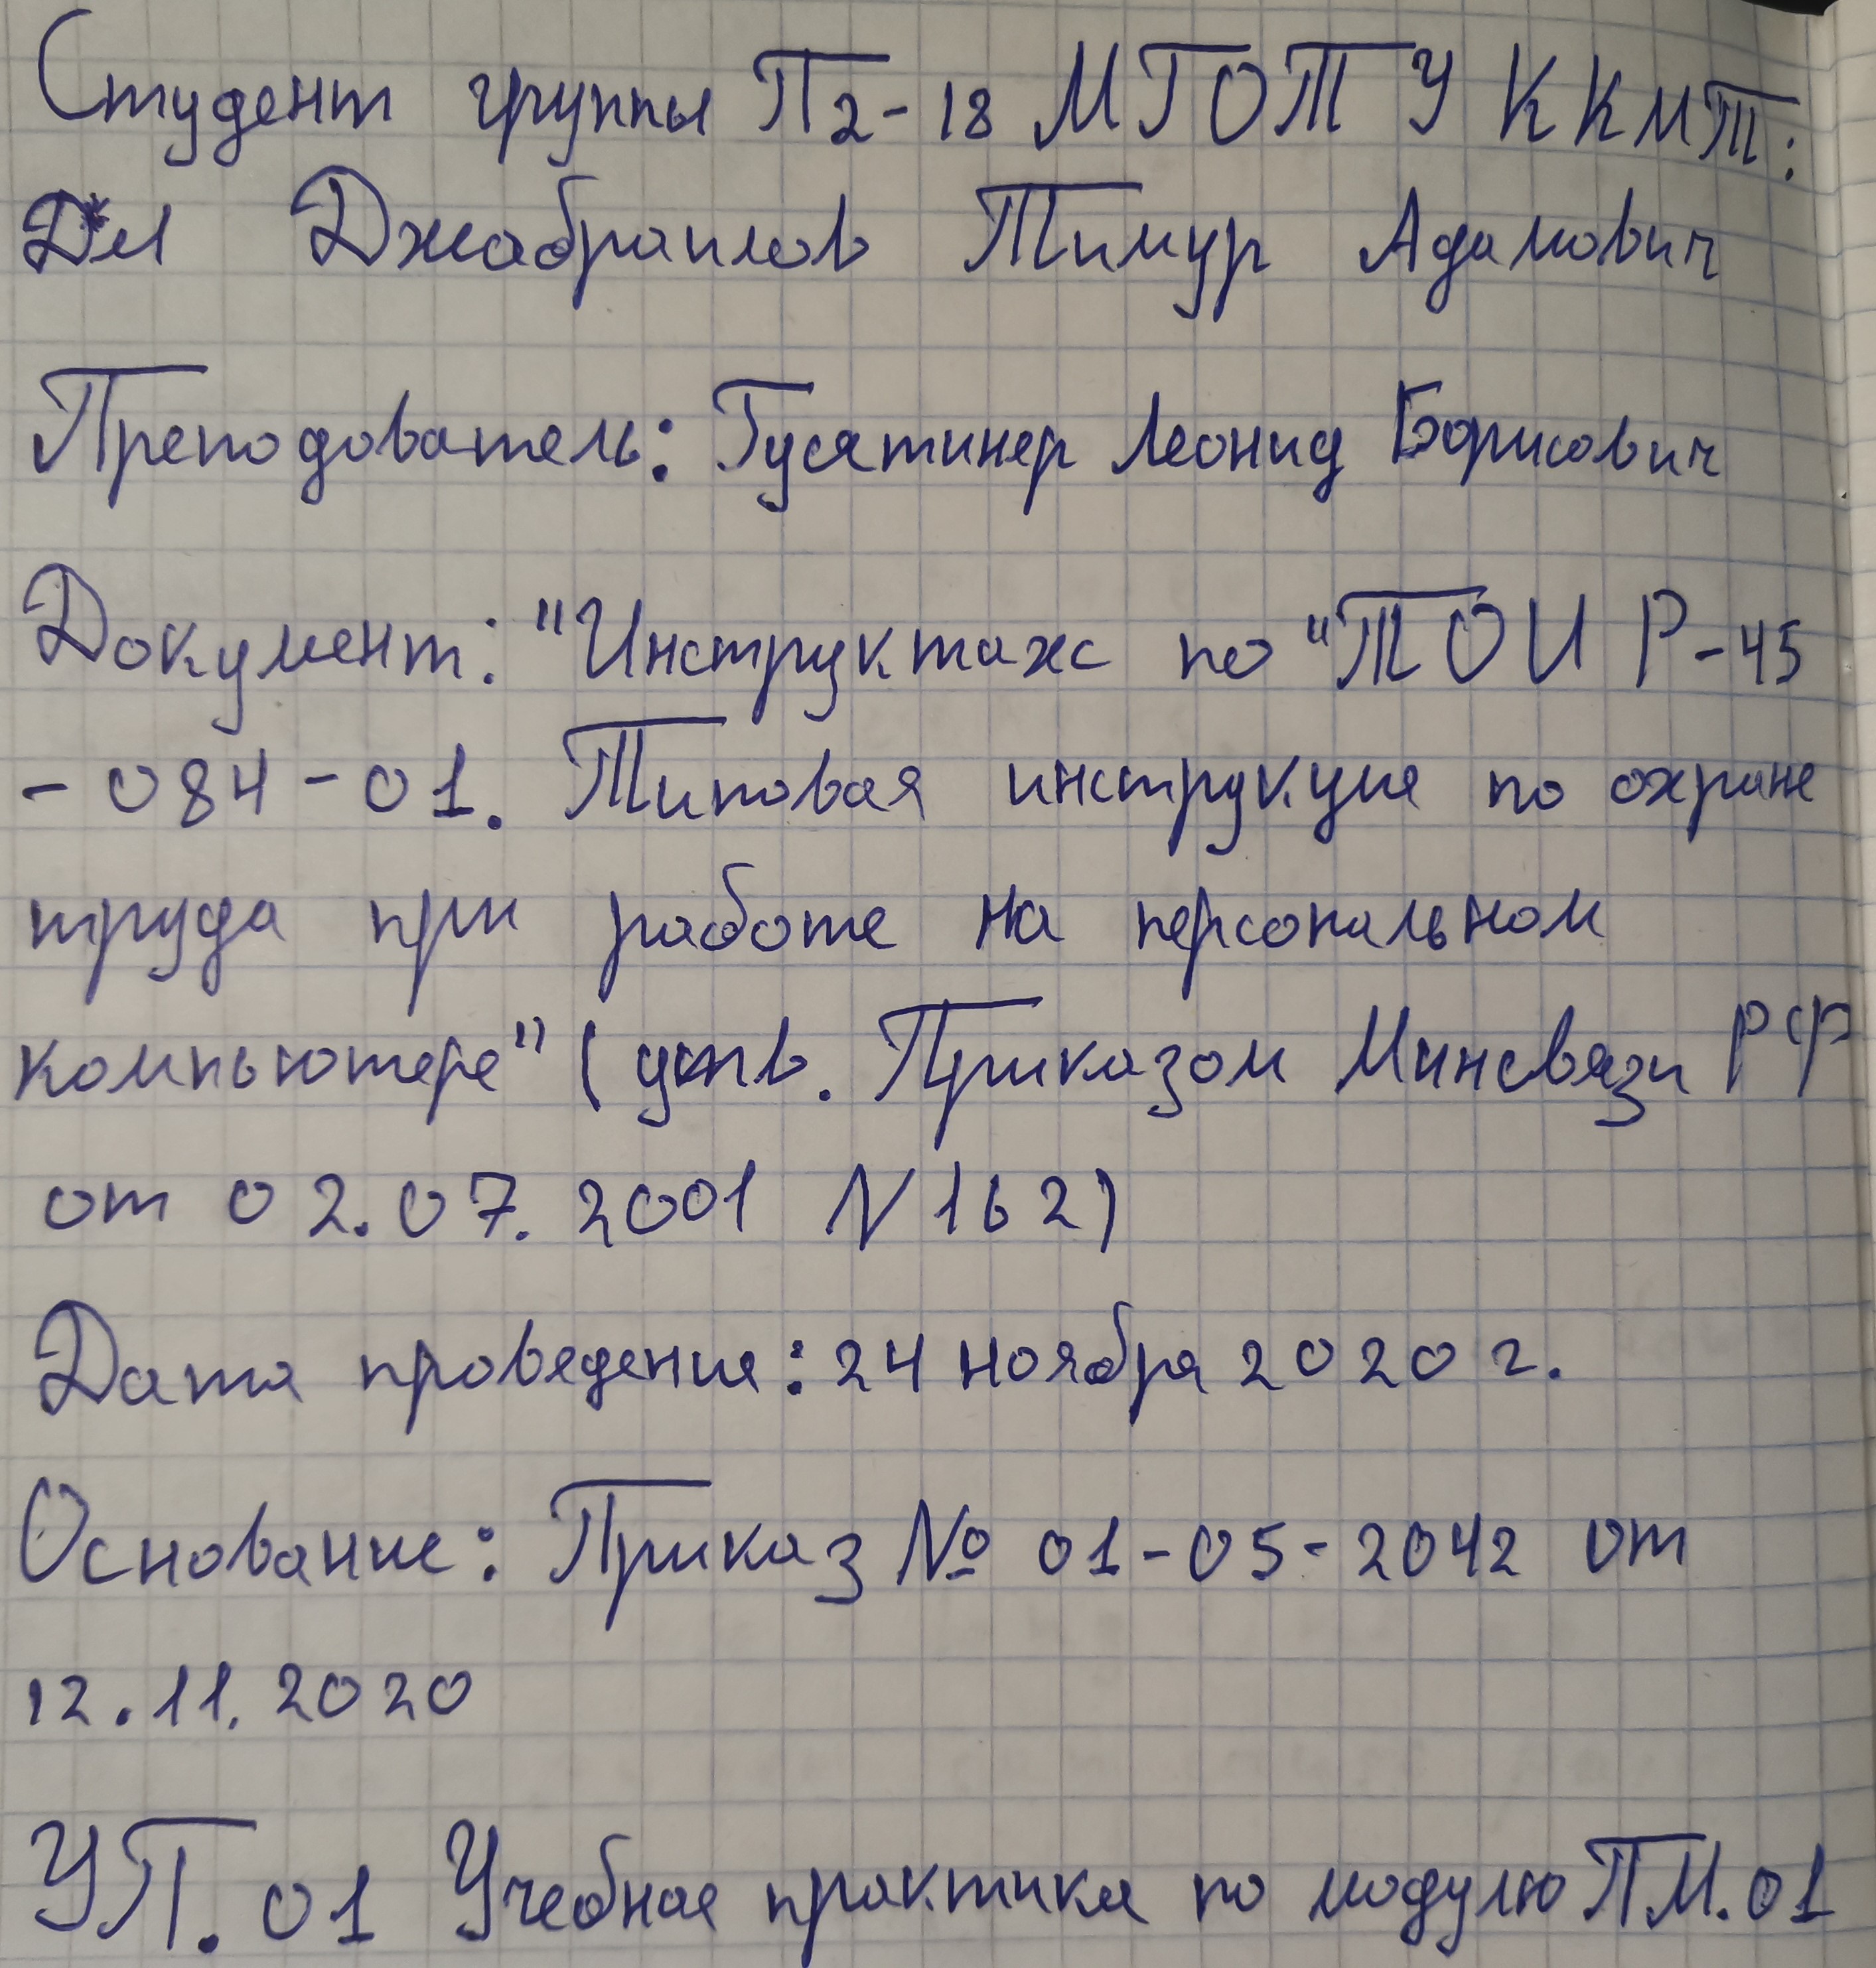 Студент группы П2-18 МГОТУ ККМТ:
Джабраилов Тимур Адамович
Преподователь: Гусятинер Леонид Борисович
Документ: "Инструктаж по "ТОИ Р-45
-084-01. Типовая инструкция по охране
труда при работе на персональном
компьютере" (утв. Приказом Минсвязи РФ
от 02.07.2001 N 162)
Дата проведения: 24 ноября 2020 г.
Основание: Приказ № 01-05-2042 от
12.11.2020
УП.01 Учебная практика по модулю ПМ.01